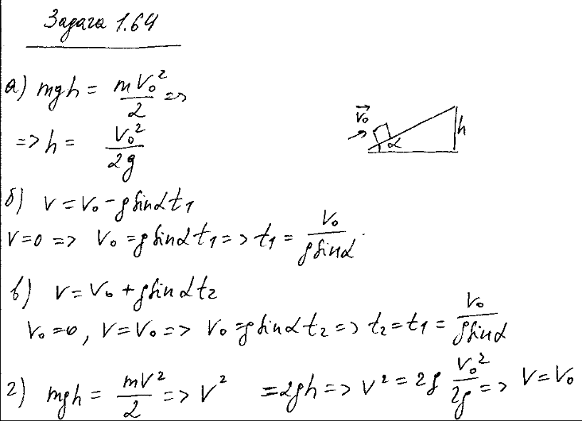 Задача 1.64
а) mgh = mV₀²/2 =>
=> h = V₀²/2g
V₀
α
h
б) V = V₀ - g sinα t₁
V = 0 => V₀ = g sinα t₁ => t₁ = V₀/g sinα
в) V = V₀ + g sinα t₂
V₀ = 0, V = V₀ => V₀ = g sinα t₂ => t₂ = t₁ = V₀/g sinα
г) mgh = mV²/2 => V² = 2gh => V² = 2g V₀²/2g => V = V₀